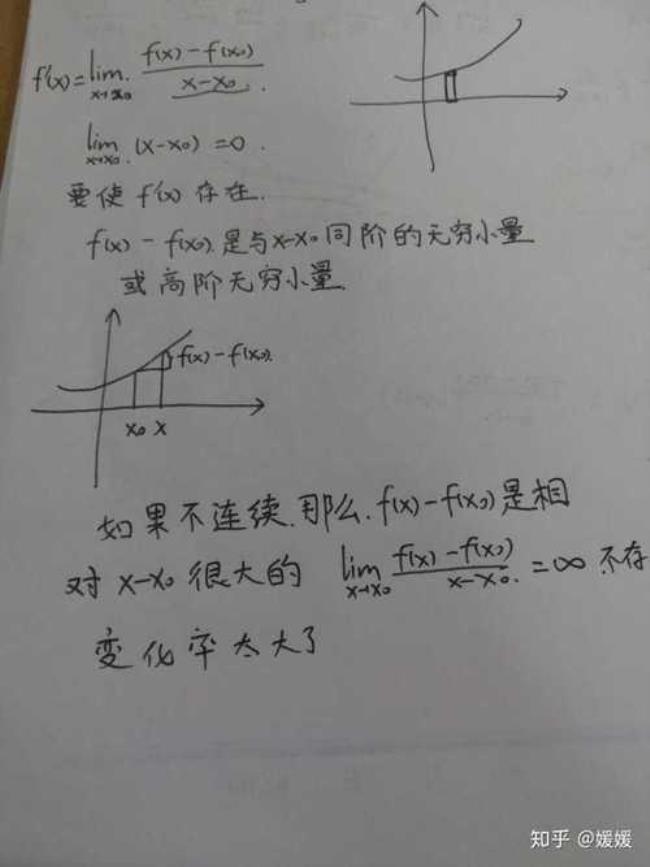 f'(x)=lim x→x₀ (f(x)-f(x₀))/(x-x₀).
lim x→x₀ (x-x₀)=0.
要使 f'(x) 存在.
f(x)-f(x₀).是与x-x₀同阶的无穷小量
或高阶无穷小量.
f(x)-f(x₀).
x₀ x
如果不连续.那么.f(x)-f(x₀)是相
对 x-x₀ 很大的 lim x→x₀ (f(x)-f(x₀))/(x-x₀.)=∞ 不存
变化率太大了
知乎 @媛媛